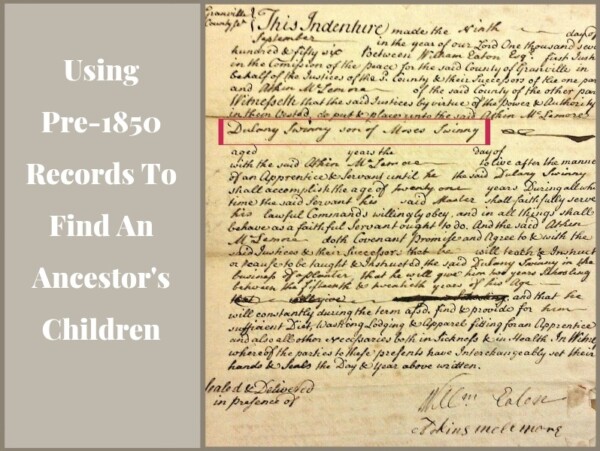 Using
Pre-1850
Records To
Find An
Ancestor's
Children
Granville
County ss
This Indenture made the Ninth day of
September in the year of our Lord One thousand seve
hundred & fifty six Between William Eaton Esqr. first Justi
in the Comission of the peace for the said County of Granville in
behalf of the Justices of the sd. County & their Successors of the one par
and Atkin McLemore of the said County of the other par
Witnesseth that the said Justices by virtue of the Power & Authority
in them Vested, do put & place unto the said Atkin McLemore
Dulany Swinny son of Moses Swinny
aged years the day of
with the said Atkin McLemore to live after the manner
of an Apprentice & Servant until he the said Dulany Swinny
shall accomplish the age of twenty one years During all wh
time the said Servant his said Master shall faithfully serve
his lawful Commands willingly obey, and in all things shall
behave as a faithful Servant ought to do. And the said Atkin
McLemore doth Covenant Promise and Agree to & with the
said Justices & their Successors that he will teach & Instruct
or cause to be taught & Instructed the said Dulany Swinny in the
business of a planter that he will give him two years Schooling
between the fifteenth & twentieth years of his Age
and that he
will constantly during the term afsd. find & provide for him
sufficient Diet, Washing Lodging & Apparel fitting for an Apprentice
and also all other Necessaries both in Sickness & in Health In Witne
whereof the parties to these presents have Interchangeably set their
hands & Seals the Day & Year above written.
Sealed & Delivered
in presence of
Willm Eaton
Atkins mclemore